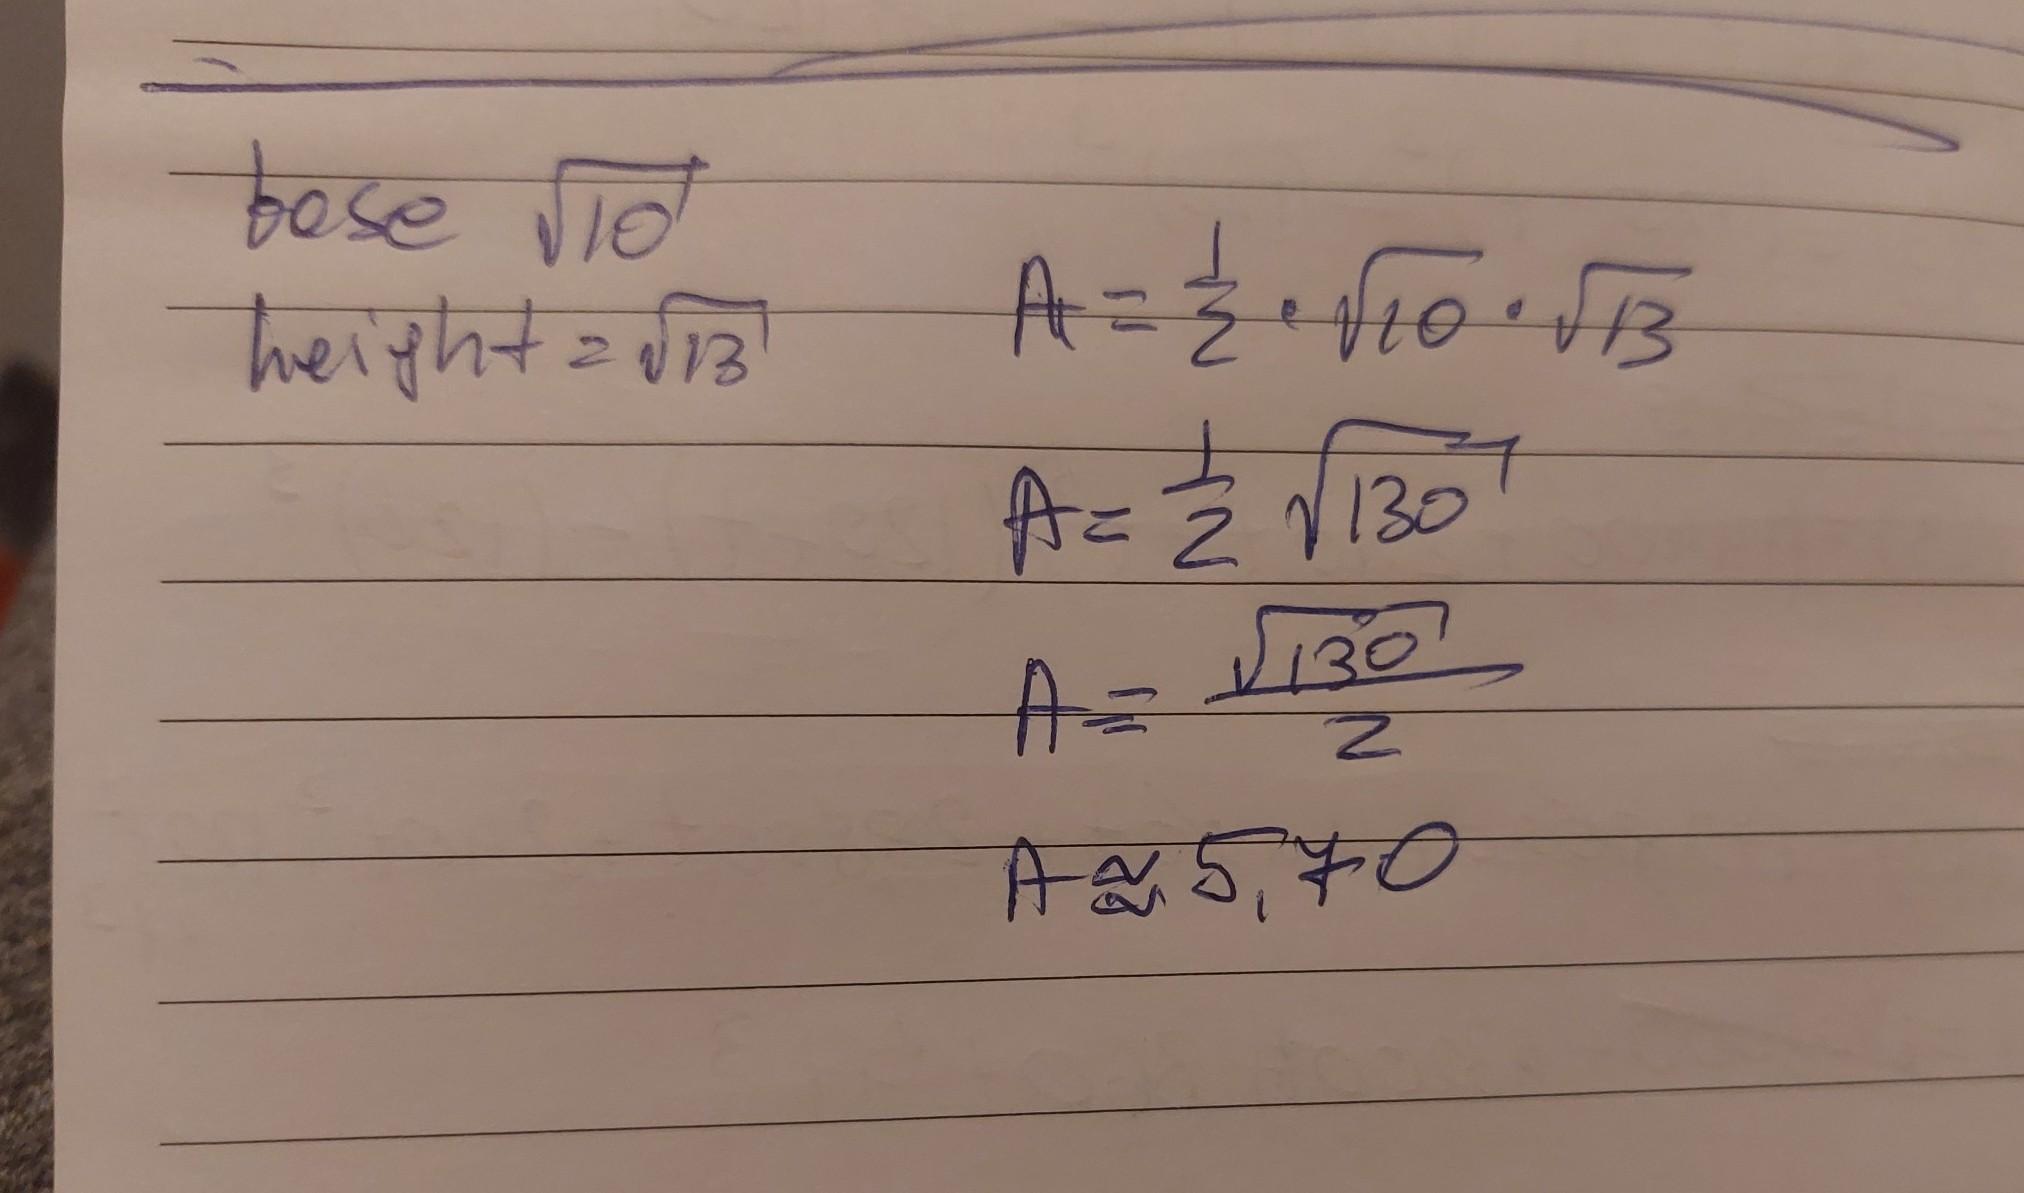 base √10
height = √13
A = 1/2 · √10 · √13
A = 1/2 √130
A = √130/2
A ≈ 5,70